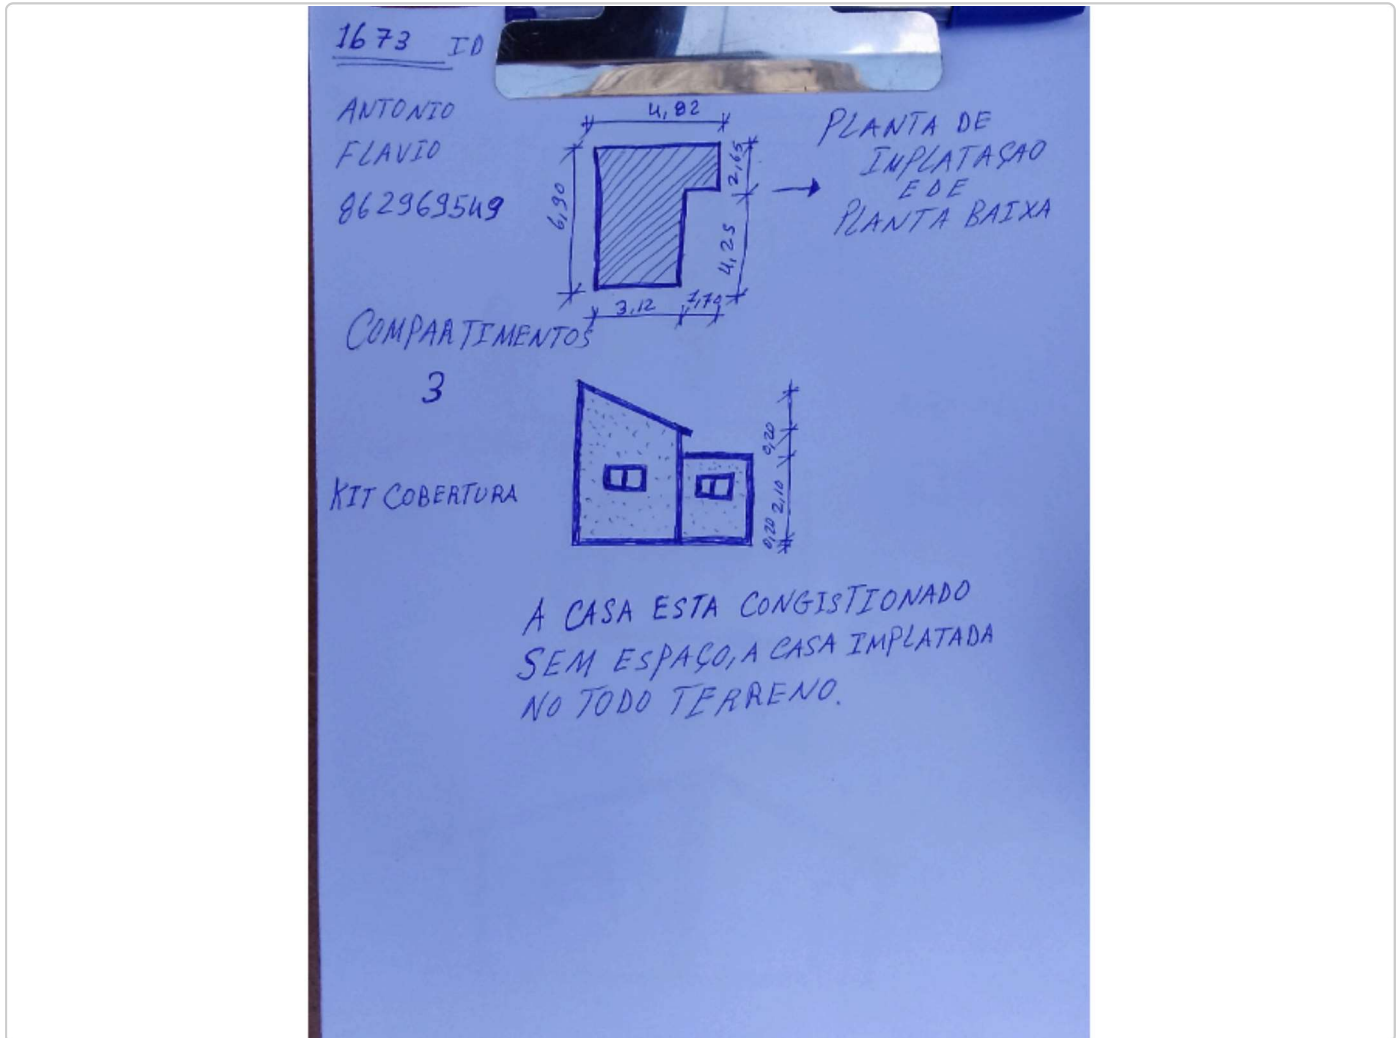 1673 ID
ANTONIO
FLAVIO
862969549
4,82
6,90
2,65
4,25
3,12
1,70
PLANTA DE
IMPLATAÇAO
E DE
PLANTA BAIXA
COMPARTIMENTOS
3
KIT COBERTURA
0,20
2,10
0,20
A CASA ESTA CONGISTIONADO
SEM ESPAÇO, A CASA IMPLATADA
NO TODO TERRENO.